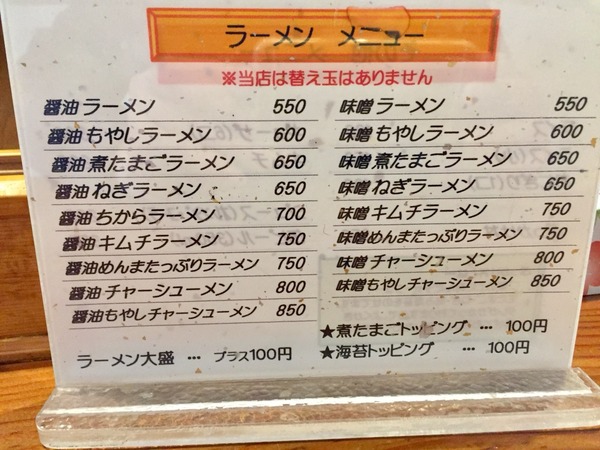 ラーメン メニュー
※当店は替え玉はありません
醤油ラーメン 550
醤油もやしラーメン 600
醤油煮たまごラーメン 650
醤油ねぎラーメン 650
醤油ちからラーメン 700
醤油キムチラーメン 750
醤油めんまたっぷりラーメン 750
醤油チャーシューメン 800
醤油もやしチャーシューメン 850
ラーメン大盛 … プラス100円
味噌ラーメン 550
味噌もやしラーメン 600
味噌煮たまごラーメン 650
味噌ねぎラーメン 650
味噌キムチラーメン 750
味噌めんまたっぷりラーメン 750
味噌チャーシューメン 800
味噌もやしチャーシューメン 850
★煮たまごトッピング … 100円
★海苔トッピング … 100円